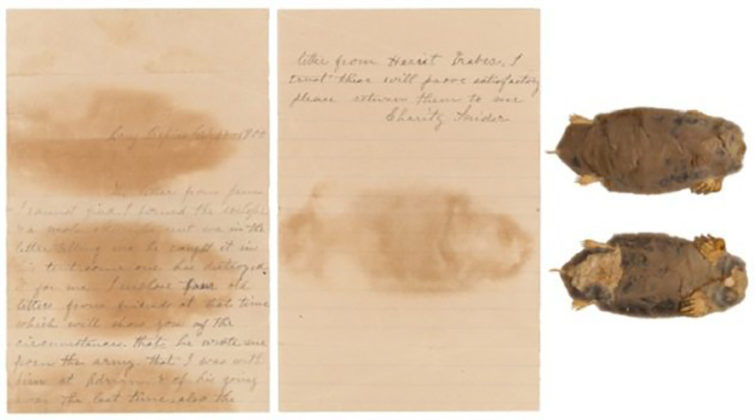 The letter from James
I cannot find. I found the envelope
& a mole skin he sent me in the
letter telling me he caught it in
his tent some one has destroyed
it for me. I enclose four old
letters from friends at that time
which will show you of the
circumstances. that he wrote me
from the army. that I was with
him at Adrian & of his going
over the last time. also the
letter from Harriet Trabes. I
trust these will prove satisfactory
please return them to me
Charity Snider